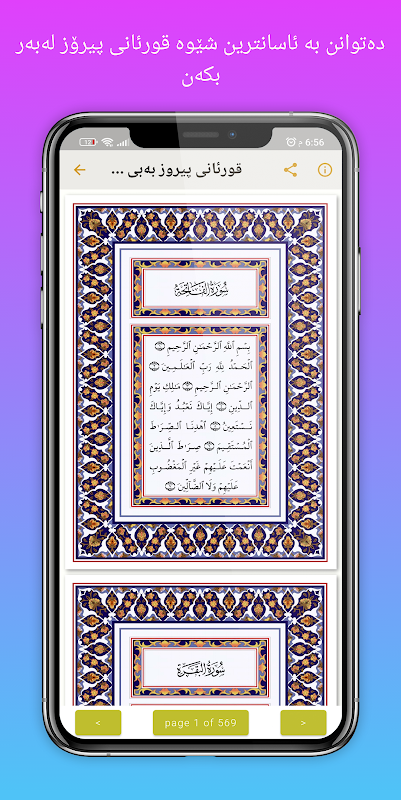 دەتوانن بە ئاسانترین شێوە قورئانی پیرۆز لەبەر
بکەن
6:56 م
قورئانی پیروز بەبی ...
سُورَةُ الفَاتِحَةِ
بِسْمِ ٱللَّهِ ٱلرَّحْمَـٰنِ ٱلرَّحِيمِ ۝
ٱلْحَمْدُ لِلَّهِ رَبِّ ٱلْعَـٰلَمِينَ ۝
ٱلرَّحْمَـٰنِ ٱلرَّحِيمِ ۝ مَـٰلِكِ يَوْمِ
ٱلدِّينِ ۝ إِيَّاكَ نَعْبُدُ وَإِيَّاكَ
نَسْتَعِينُ ۝ ٱهْدِنَا ٱلصِّرَٰطَ
ٱلْمُسْتَقِيمَ ۝ صِرَٰطَ ٱلَّذِينَ
أَنْعَمْتَ عَلَيْهِمْ غَيْرِ ٱلْمَغْضُوبِ
عَلَيْهِمْ وَلَا ٱلضَّآلِّينَ ۝
سُورَةُ البَقَرَةِ
< page 1 of 569 >